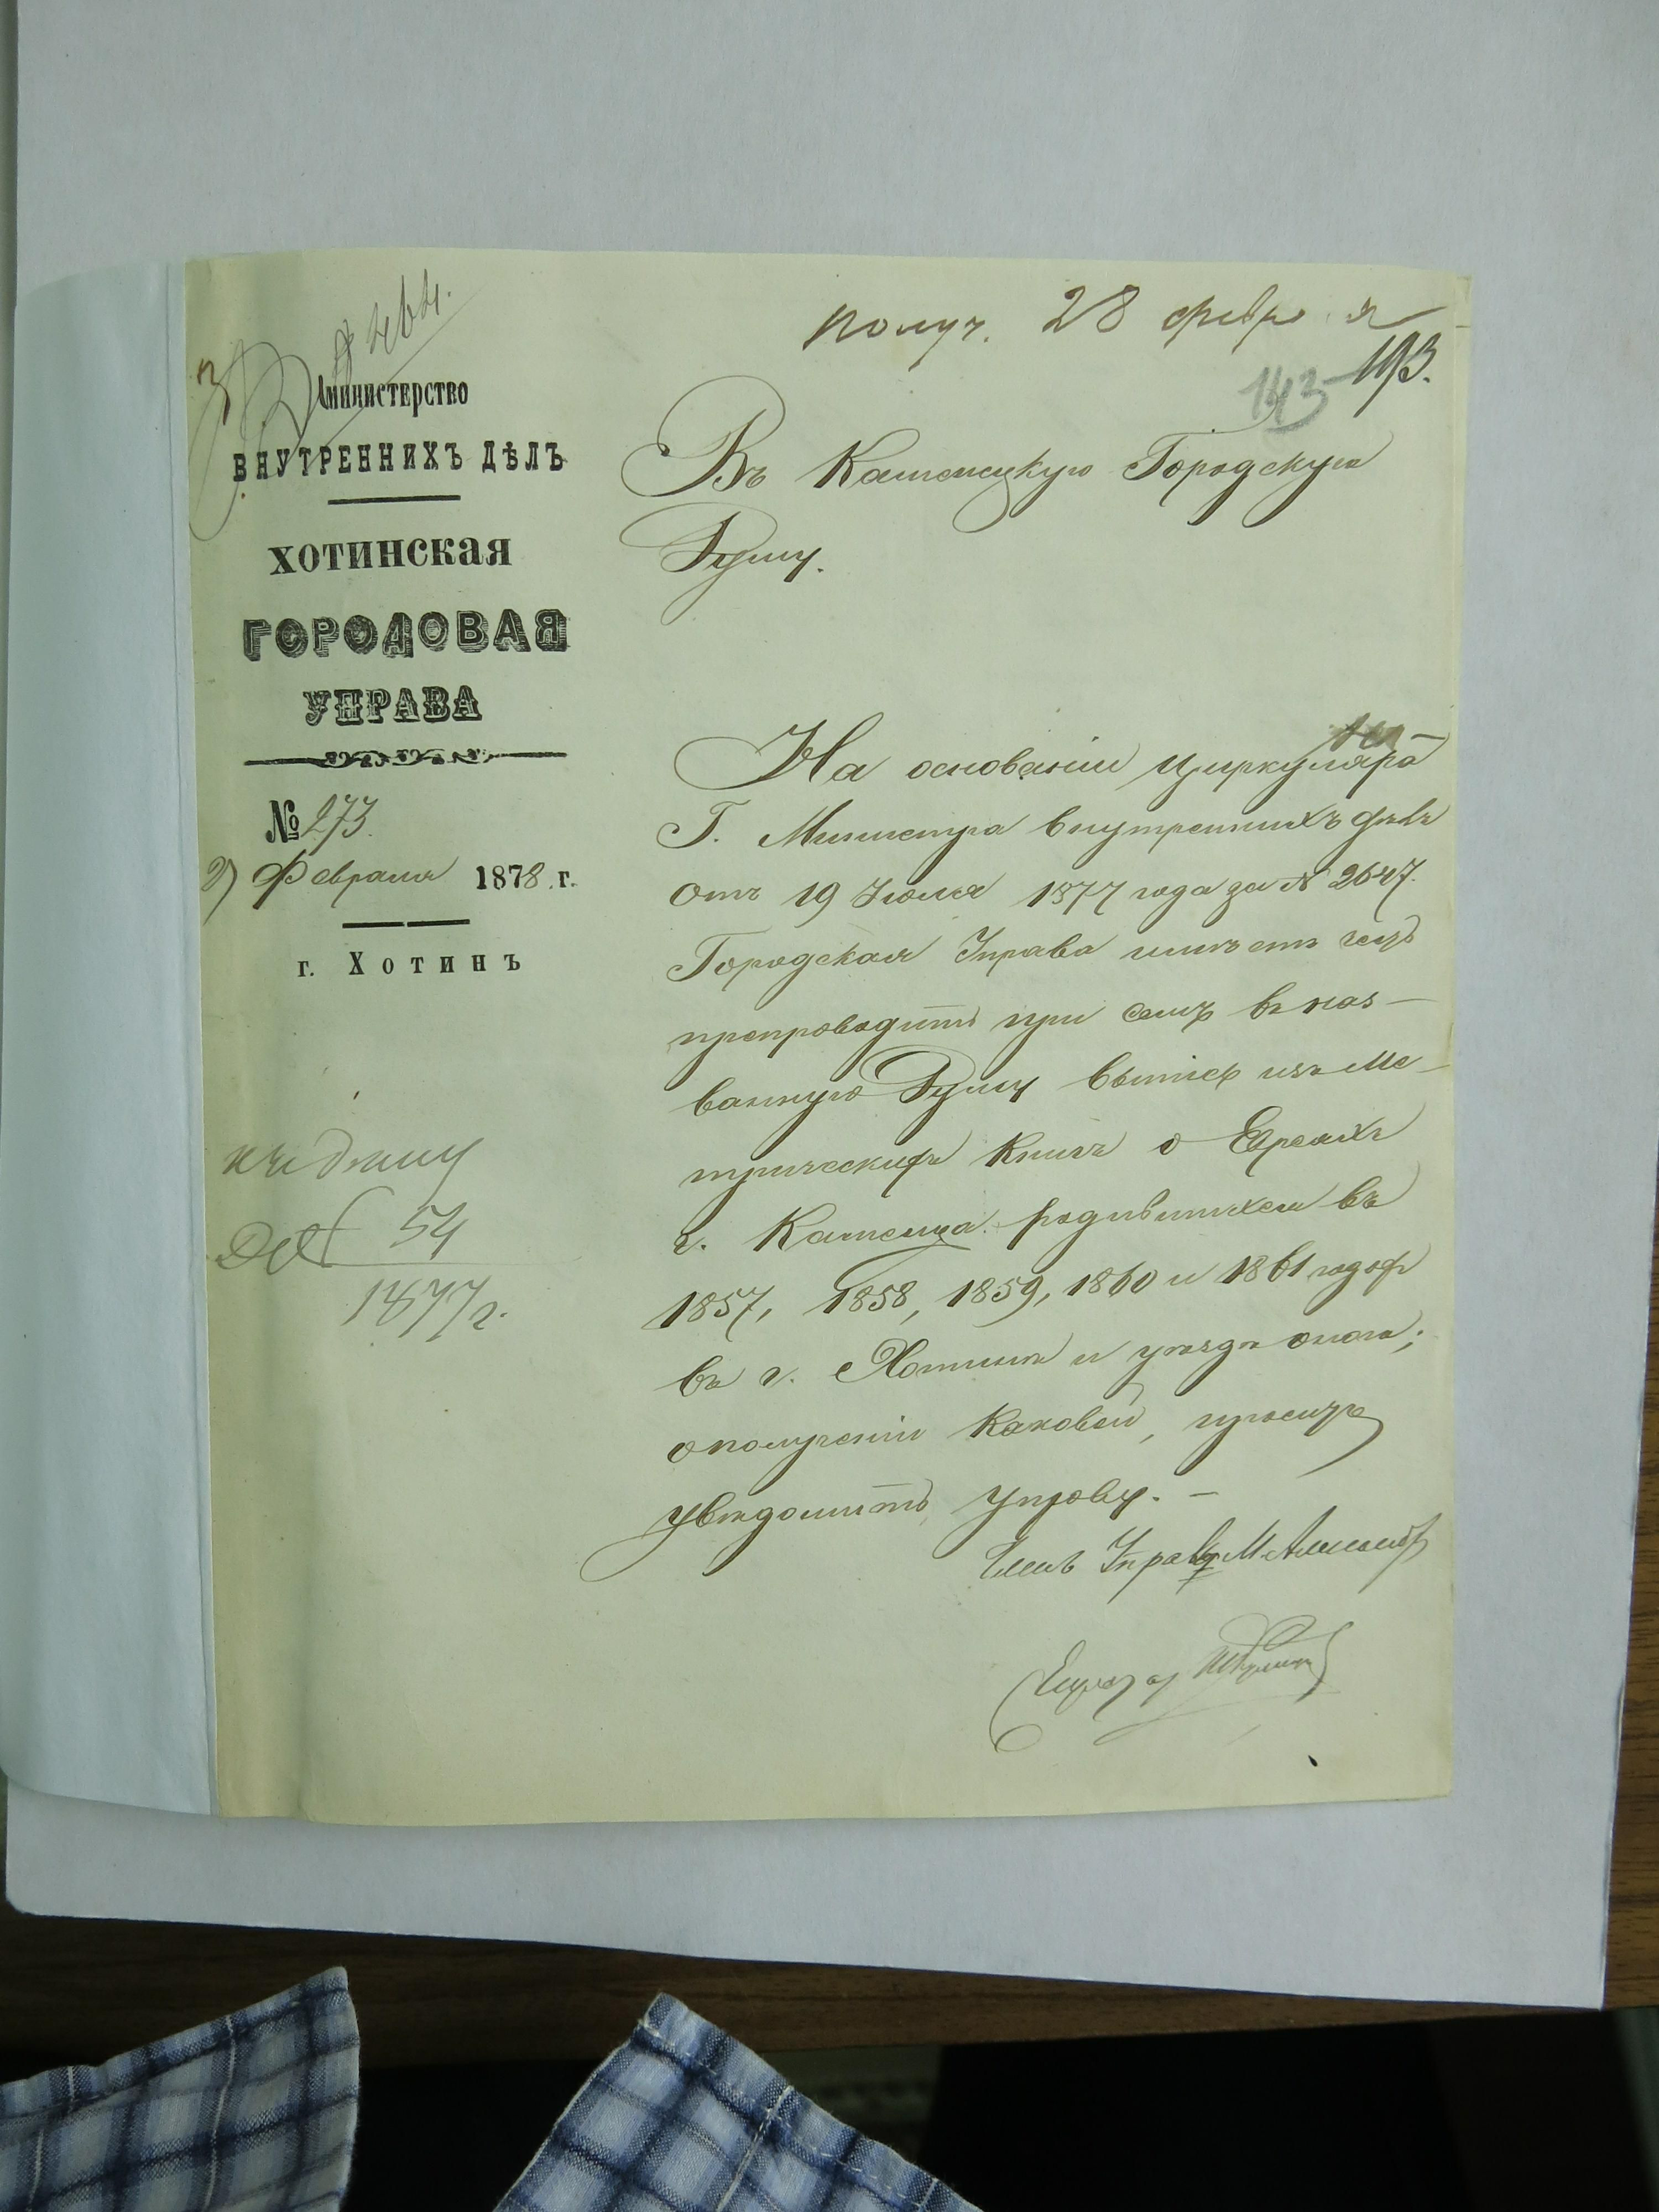 получ. 28 февр
193.
143
№ 464.
Министерство
ВНУТРЕННИХЪ ДѢЛЪ
ХОТИНСКАЯ
ГОРОДОВАЯ
УПРАВА
№ 273.
Февраля 1878 г.
г. Хотинъ
Въ Каменецкую Городскую
Думу.
На основаніи циркуляра
Г. Министра внутреннихъ дѣлъ
отъ 19 Іюля 1877 года за № 2647.
Городская Управа имѣетъ честь
препроводить при семъ въ наз-
ванную Думу выписъ изъ Ме-
трическихъ книгъ о Евреяхъ
г. Каменца родившихся въ
1857, 1858, 1859, 1860 и 1861 годахъ
въ г. Хотинѣ и уѣздѣ онаго;
о полученіи каковой, проситъ
увѣдомить управу. —
Членъ Управы
къ дѣлу
54
1877 г.